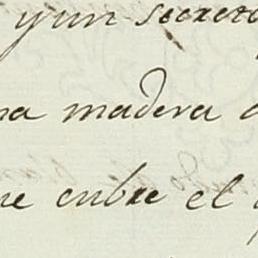 y un secreto
na madera
ne cubre el